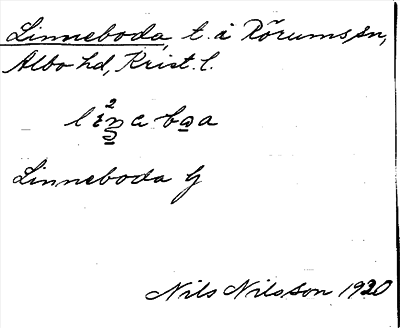 Linneboda, t. å Rörums sn,
Albo hd, Krist. l.
Linneboda G
Nils Nilsson 1920